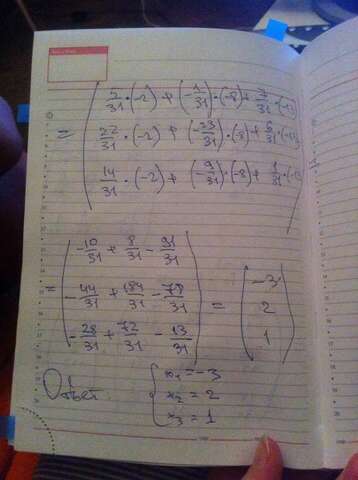 5/31·(-2) + (-1/31)·(-8) + 7/31·(-13)
= 22/31·(-2) + (-23/31)·(-8) + 6/31·(-13)
14/31·(-2) + (-9/31)·(-8) + 1/31·(-13)
-10/31 + 8/31 - 91/31
= -44/31 + 184/31 - 78/31 =
-28/31 + 72/31 - 13/31
-3
2
1
Ответ:
x₁ = -3
x₂ = 2
x₃ = 1